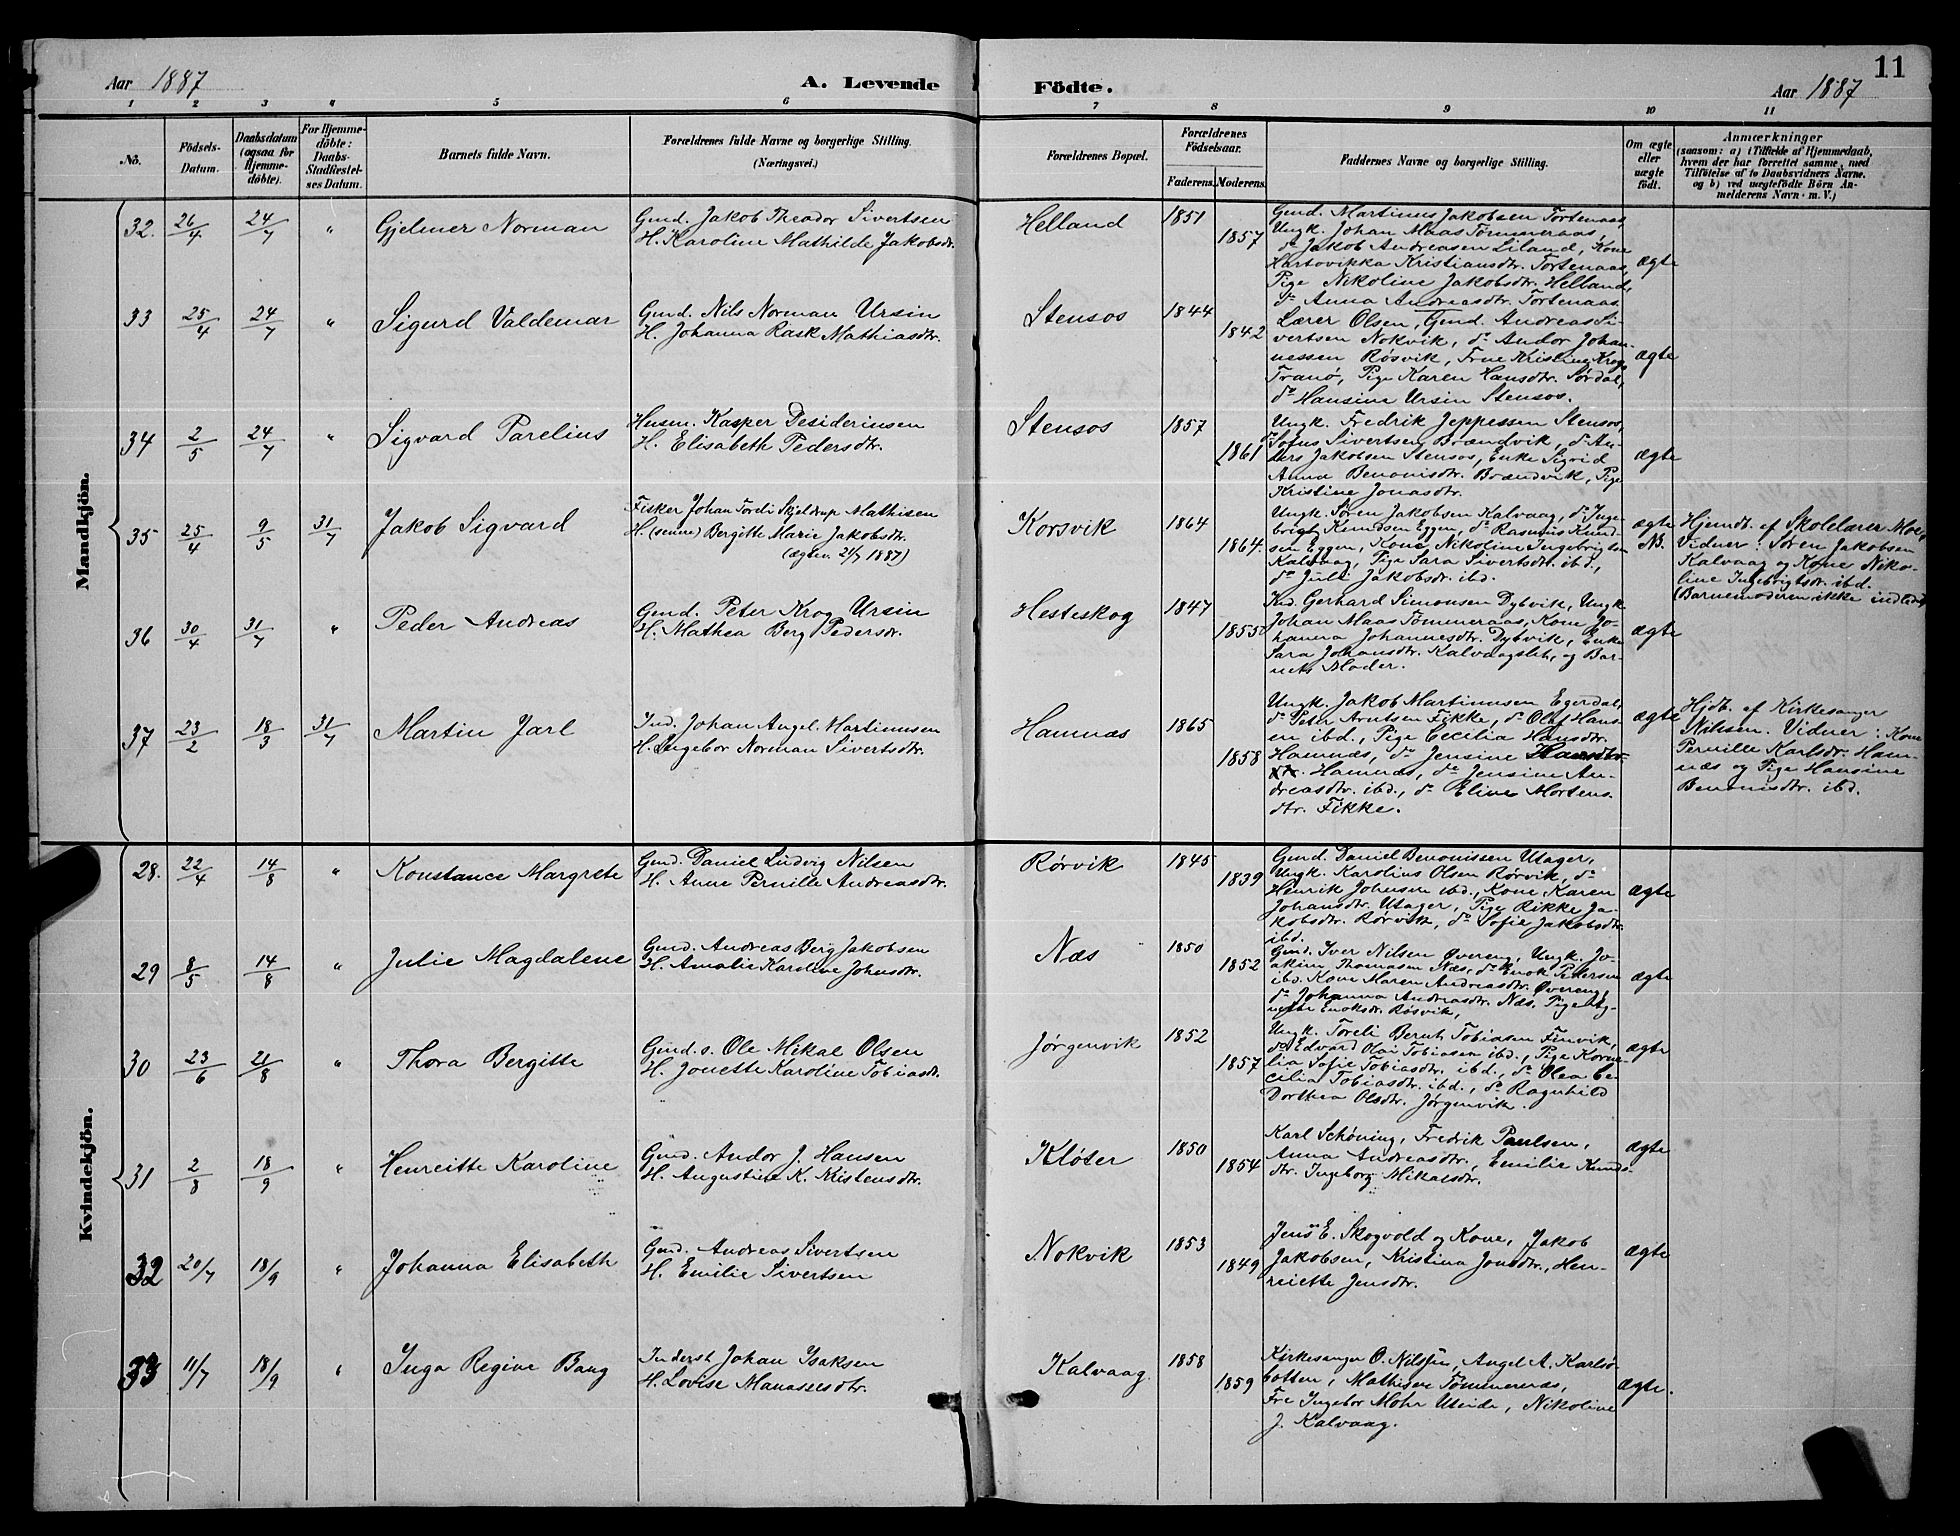 Aar 1887
A. Levende
Födte.
Aar 1887
11
1 2 3 4 5 6 7 8 9 10 11
No.
Födsels-
Datum.
Daabsdatum
(ogsaa for
Hjemme-
döbte).
For Hjemme-
döbte:
Daabs-
Stadfæstel-
ses Datum.
Barnets fulde Navn.
Forældrenes fulde Navne og borgerlige Stilling.
(Næringsvei.)
Forældrenes Bopæl.
Forældrenes
Födselsaar.
Faderens. Moderens.
Faddernes Navne og borgerlige Stilling.
Om ægte
eller
uægte
födt.
Anmærkninger
(saasom: a) i Tilfælde af Hjemmedaab,
hvem der har forrettet samme, med
Tilföielse af to Daabsvidners Navne,
og b) ved uægtefödte Börn An-
melderens Navn m. V.)
Mandkjön.
32. 26/4 24/7 "
Gjelmer Norman
Gmd. Jakob Theodor Sivertsen
H. Karoline Mathilde Jakobsdtr.
Helland
1851
1857
Gmd. Martinus Jakobsen Tortenaas,
Ungk. Johan Maas Tømmeraas,
do Jakob Andreasen Liland, Kone
Hartovikka Kristiansdtr. Tortenaas,
Pige Nikoline Jakobsdtr. Helland,
do Anna Andreasdtr. Tortenaas
ægte
33 25/4 24/7 "
Sigurd Valdemar
Gmd. Nils Norman Ursin
H. Johanna Rask Mathiasdtr.
Stensos
1844
1842
Lærer Olsen, Gmd. Andreas Si-
vertsen Nokvik, do Andor Johan-
nessen Røsvik, Frue Kristine Krog
Tranø, Pige Karen Hansdtr. Sørdal,
do Hansine Ursin Stensos.
ægte
34 2/5 24/7 "
Sigvard Parelius
Husm. Kasper Desideriusen
H. Elisabeth Pedersdtr.
Stensos
1857
1861
Ungk. Fredrik Jeppessen Stensos,
do Sofus Sivertsen Brændvik, do An-
ders Jakobsen Stensos, Enke Sigrid
Anna Benonisdtr. Brændvik, Pige
Kristine Jonasdtr.
ægte
35 25/4 9/5 31/7
Jakob Sigvard
Fisker Johan Toreli Skjeldrup Mathisen
H. (senere) Bergitte Marie Jakobsdtr.
(ægtev. 21/7 1887)
Korsvik
1864
1864
Ungk. Søren Jakobsen Kalvaag, do Inge-
brigt Knudsen Eggen, do Rasmus Knud-
sen Eggen, Kone Nikoline Ingebrigtsen
Kalvaag, Pige Sara Sivertsdtr. ibd.,
do Juli Jakobsdr. ibd.
ægte
NB.
Hjemdb. af Skolelærer
Vidner: Søren Jakobsen
Kalvaag og Kone Niko-
line Ingebrigtsdr. ibd.
(Barnemoderen ikke indledet)
36 30/4 31/7 "
Peder Andreas
Gmd. Peter Krog Ursin
H. Mathea Berg Pedersdr.
Hesteskog
1847
1855
Gerhard Simonsen Dybvik, Ungk
Johan Maas Tømmeraas, Kone Jo-
hanna Johannesdtr. Dybvik, Enke
Sara Johansdtr. Kalvaagslet, og Bar-
nets Moder.
ægte
37 23/2 18/3 31/7
Martin Jarl
Ind. Johan Angel Martinussen
H. Ingebor Norman Sivertsdtr.
Hamnæs
1865
1858
Ungk. Jakob Martinussen Egerdal,
do Peter Arntsen Fikke, do Olaf Hans-
en ibd., Pige Cecilia Hansdtr.
Hamnæs, do Jensine Hansdtr
Hamnæs, do Jensine An-
dreasdtr. ibd., do Eline Mortens
dtr. Fikke.
ægte
Hjdb. af Kirkesanger
Nilsen. Vidner: Kone
Pernille Karlsdr. Ham-
næs og Pige Hansine
Benonisdtr. ibd.
Kvindekjön.
28. 22/4 14/8 "
Konstance Margrete
Gmd. Daniel Ludvig Nilsen
H. Anne Pernille Andreasdtr.
Rørvik
1845
1839
Gmd. Daniel Benonissen Utager,
Ungk. Karolius Olsen Rørvik, do
Henrik Johnsen ibd., Kone Karen
Johansdtr. Utager, Pige Rikke Ja-
kobsdtr. Rørvik, do Sofie Jakobsdtr.
ibd.
ægte
29 8/5 14/8 "
Julie Magdalene
Gmd. Andreas Berg Jakobsen
H. Amalie Karoline Johnsdtr.
Næs
1850
1852
Gmd. Iver Nilsen Øvereng, Ungk. Jo-
akim Thomasen Næs, do Enok Pedersen
ibd. Kone Maren Andreasdtr. Øvereng,
do Johanna Andreasdtr. Næs. Pige Ag-
nethe Enoksdr. Røsvik,
ægte
30 23/6 21/8 "
Thora Bergitte
Gmd.s. Ole Mikal Olsen
H. Jonette Karoline Tobiasd.
Jørgenvik
1852
1857
Ungk. Toreli Bernt Tobiasen Finvik,
do Edvard Olai Tobiasen ibd., Pige Korne-
lia Sofie Tobiasdtr. ibd., do Olea Ce-
cilia Tobiasdtr. ibd., do Ragnhild
Dorthea Olsdtr. Jørgenvik.
ægte
31 2/8 18/9 "
Henreitte Karoline
Gmd. Andor J. Hansen
H. Augustine K. Kristensdtr.
Kløter
1850
1854
Karl Schøning, Fredrik Paulsen,
Anna Andreasdtr., Emilie Knuds-
dtr. Ingeborg Mikalsdtr.
ægte
32 20/7 18/9 "
Johanna Elisabeth
Gmd. Andreas Sivertsen
H. Emilie Sivertsen
Nokvik
1853
1849
Jens E. Skogvold og Kone, Jakob
Jakobsen, Kristina Jonsdtr., Hen-
reiette Jensdtr.
ægte
33 11/7 18/9 "
Inga Regine Bang
Inderst Johan Isaksen
H. Lovise Manassesdtr.
Kalvaag
1858
1859
Kirkesanger O. Nilssen, Angel A. Karlsø
botten, Mathisen Tømmernæs,
Frk Ingebor Mohr Uteide, Nikoline
J. Kalvaag.
ægte.